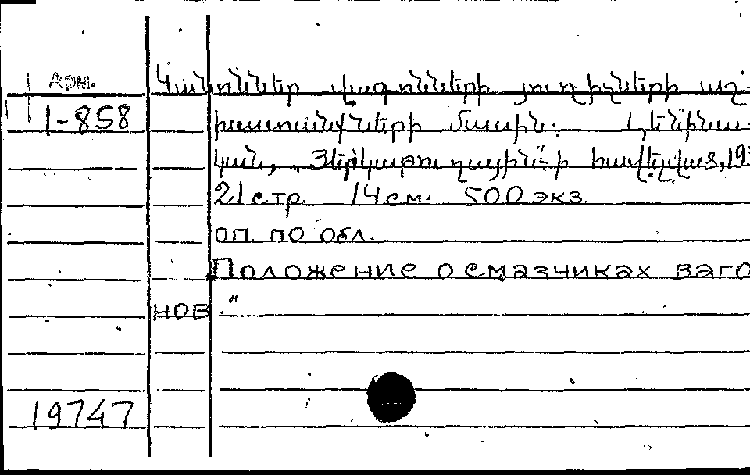 Арм.
Կանոններ վագոնների յուղիչների աշ
1-858
խատանքների մասին: Լենինա
կան, Յերկաթուղային
21 стр. 14 см. 500 экз.
оп. по обл.
Положение о смазчиках ваго
нов."
19747